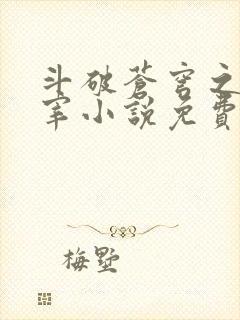 斗破蒼穹之
宰小說免費
梅墅